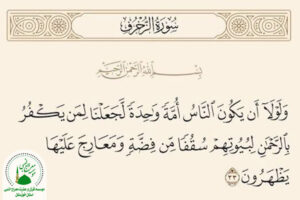 سُورَةُ الزُّخْرُفِ
بِسْمِ اللَّهِ الرَّحْمَٰنِ الرَّحِيمِ
وَلَوْلَا أَن يَكُونَ النَّاسُ أُمَّةً وَاحِدَةً لَّجَعَلْنَا لِمَن يَكْفُرُ
بِالرَّحْمَٰنِ لِبُيُوتِهِمْ سُقُفًا مِّن فِضَّةٍ وَمَعَارِجَ عَلَيْهَا
يَظْهَرُونَ ٣٣